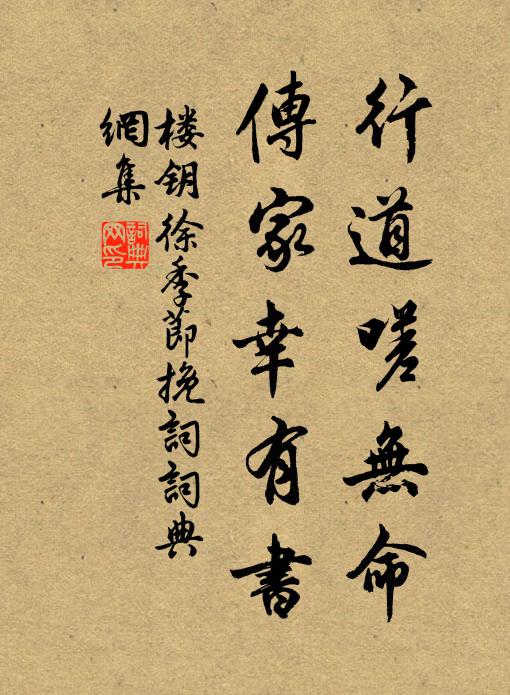 行道嗟無命
傳家幸有書
楼钥徐季節挽詞詞典
網集
詞典
网印